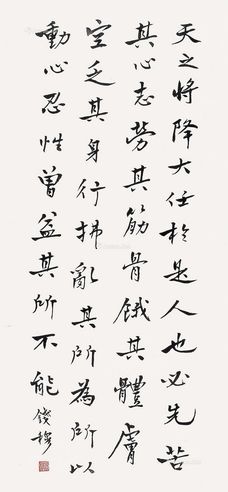 天之將降大任於是人也必先苦
其心志勞其筋骨餓其體膚
空乏其身行拂亂其所為所以
動心忍性曾益其所不能
錢穆